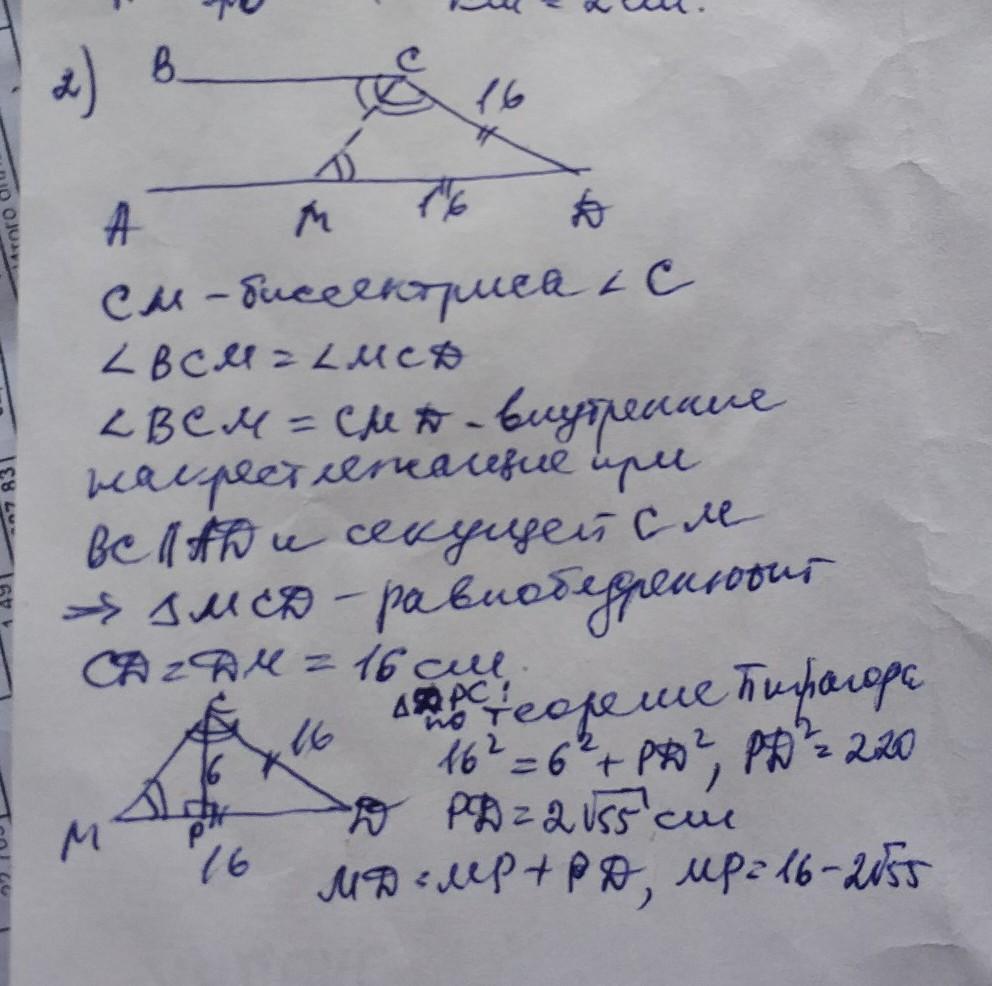 2)
B C 16
A M 16 D
CM - биссектриса ∠ C
∠ BCM = ∠ MCD
∠ BCM = CMD - внутренние
накрест лежащие при
BC || AD и секущей CM
⇒ Δ MCD - равнобедренный
CD = DM = 16 см.
Δ PC:
по теореме Пифагора
C 16
6
16² = 6² + PD², PD² = 220
M P D
PD = 2√55 см
16
MD = MP + PD, MP = 16 - 2√55